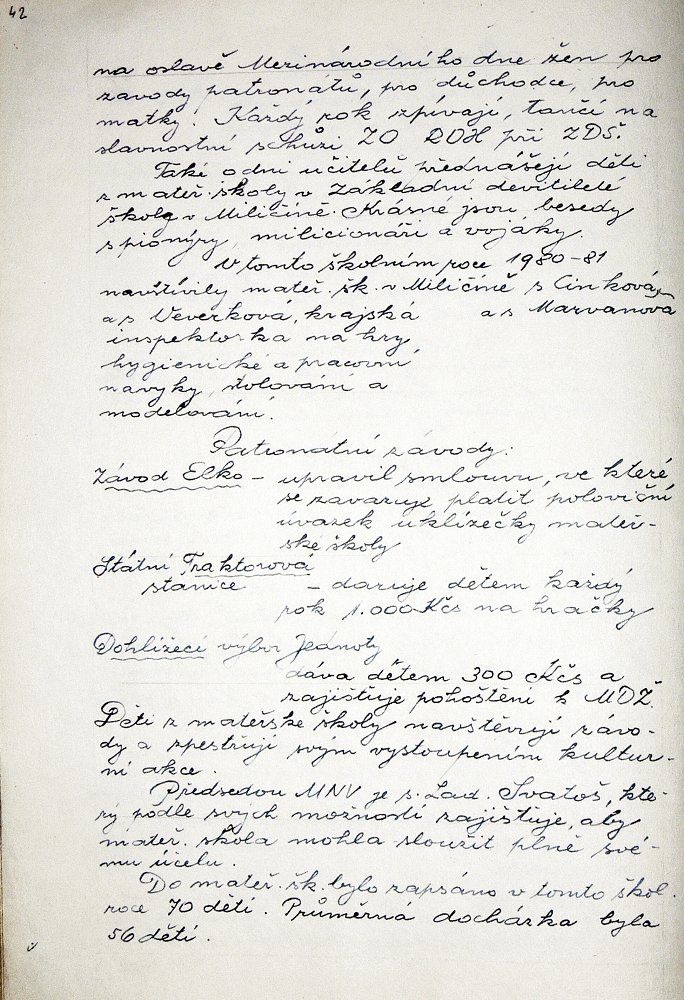 42
na oslavě Mezinárodního dne žen pro
závody patronátů, pro důchodce, pro
matky. Každý rok zpívají, tančí na
slavnostní schůzi ZO ROH při ZDŠ.
Také o dni učitelů přednášejí děti
z mateř. školy v Základní devítileté
škole v Miličíně. Krásné jsou besedy
s pionýry, milicionáři a vojáky.
V tomto školním roce 1980-81
navštívily mateř. šk. v Miličíně s Cinková,
a s Veverková, krajská a s Marvanová
inspektorka na hry
hygienické a pracovní
návyky, stolování a
modelování.
Patronátní závody:
Závod Elko - upravil smlouvu, ve které
se zavazuje platit poloviční
úvazek uklízečky mateř-
ské školy
Státní Traktorová
stanice - daruje dětem každý
rok 1.000 Kčs na hračky
Dohlížecí výbor Jednoty
dává dětem 300 Kčs a
zajišťuje pohoštění k MDŽ.
Děti z mateřské školy navštěvují závo-
dy a zpestřují svým vystoupením kultur-
ní akce.
Předsedou MNV je s. Lad. Svatoš, kte-
rý podle svých možností zajišťuje, aby
mateř. škola mohla sloužit plně své-
mu účelu.
Do mateř. šk. bylo zapsáno v tomto škol.
roce 70 dětí. Průměrná docházka byla
56 dětí.